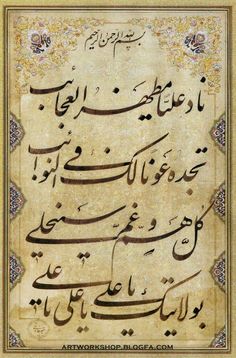 بسم الله الرحمن الرحیم
ناد علیاً مظهر العجائب
تجده عوناً لک فی النوائب
کل هم و غم سینجلی
بولایتک یا علی یا علی یا علی
ARTWORKSHOP.BLOGFA.COM